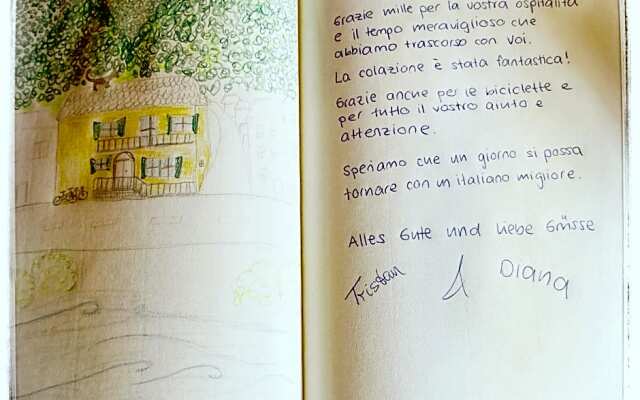 Grazie mille per la vostra ospitalità
e il tempo meraviglioso che
abbiamo trascorso con voi.
La colazione è stata fantastica!
Grazie anche per le biciclette e
per tutto il vostro aiuto e
attenzione.
Speriamo che un giorno si possa
tornare con un italiano migliore.
Alles Gute und liebe Grüsse
Tristan
Diana